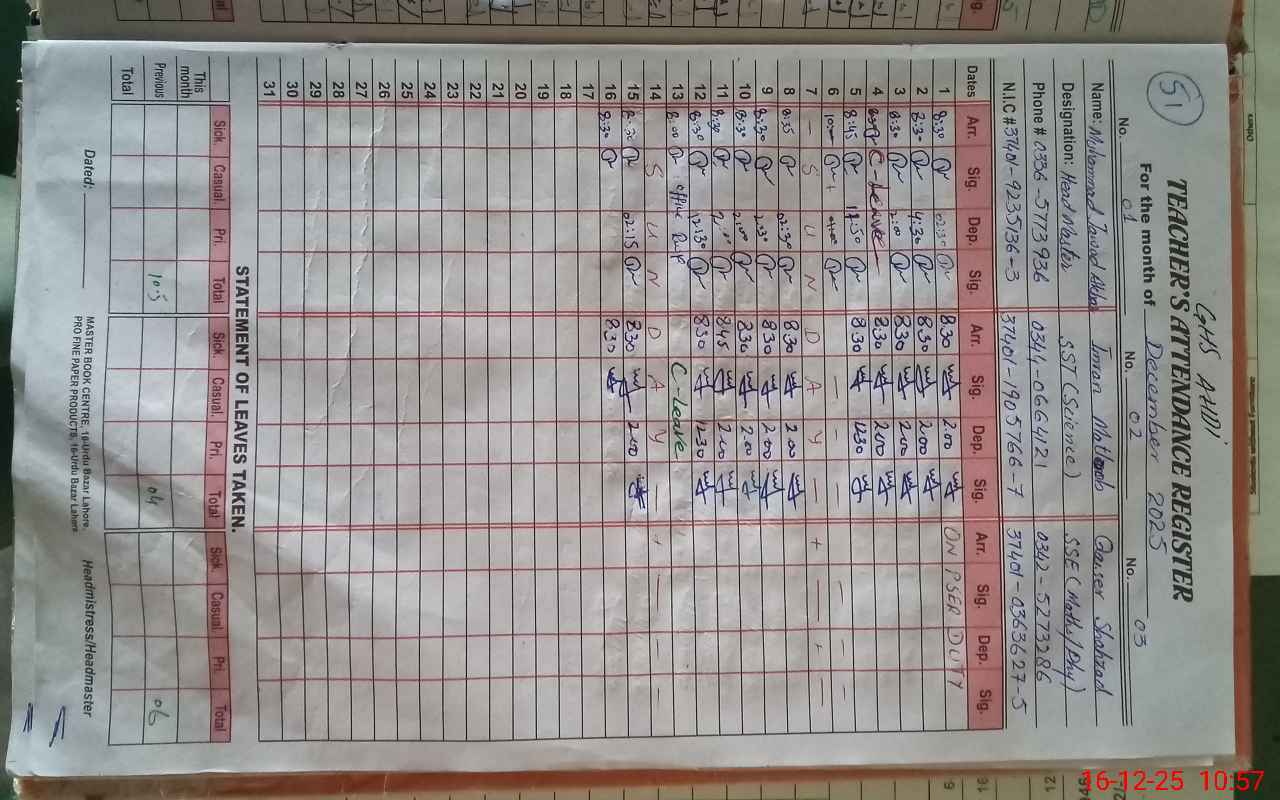 51
GHS AHDI
TEACHER'S ATTENDANCE REGISTER
For the month of December 2025
No. 01 No. 02 No. 03
Name: Muhammad Jawad Akbar Imran Matloob Qaiser Shahzad
Designation: Head Master SST (Science) SSE (Maths/Phy)
Phone # 0336-5773936 0344-0664121 0342-5273286
N.I.C # 37401-9235136-3 37401-1905766-7 37401-0363627-5
Dates Arr. Sig. Dep. Sig. Arr. Sig. Dep. Sig. Arr. Sig. Dep. Sig.
1 8:30 02:30 830 200 ON PSER DUTY
2 8:30 4:30 830 200
3 8:30 2:00 830 200
4 C-Leave 830 200
5 8:45 830 1230
6
7 — S U N D A Y —
8 8:35 02:30 830 200
9 830 200
10 830 200
11 8:30 845 200
12 8:30 12:30 830 1230
13 8:00 office C-Leave
14 S U N D A Y —
15 8:30 02:15 830 200
16 8:30 830
17
18
19
20
21
22
23
24
25
26
27
28
29
30
31
STATEMENT OF LEAVES TAKEN.
Sick. Casual. Pri. Total Sick. Casual. Pri. Total Sick. Casual. Pri. Total
This month
Previous 10.5 04 06
Total
Dated:
MASTER BOOK CENTRE, 16-Urdu Bazar Lahore.
PRO FINE PAPER PRODUCTS, 16-Urdu Bazar Lahore
Headmistress/Headmaster
16-12-25 10:57